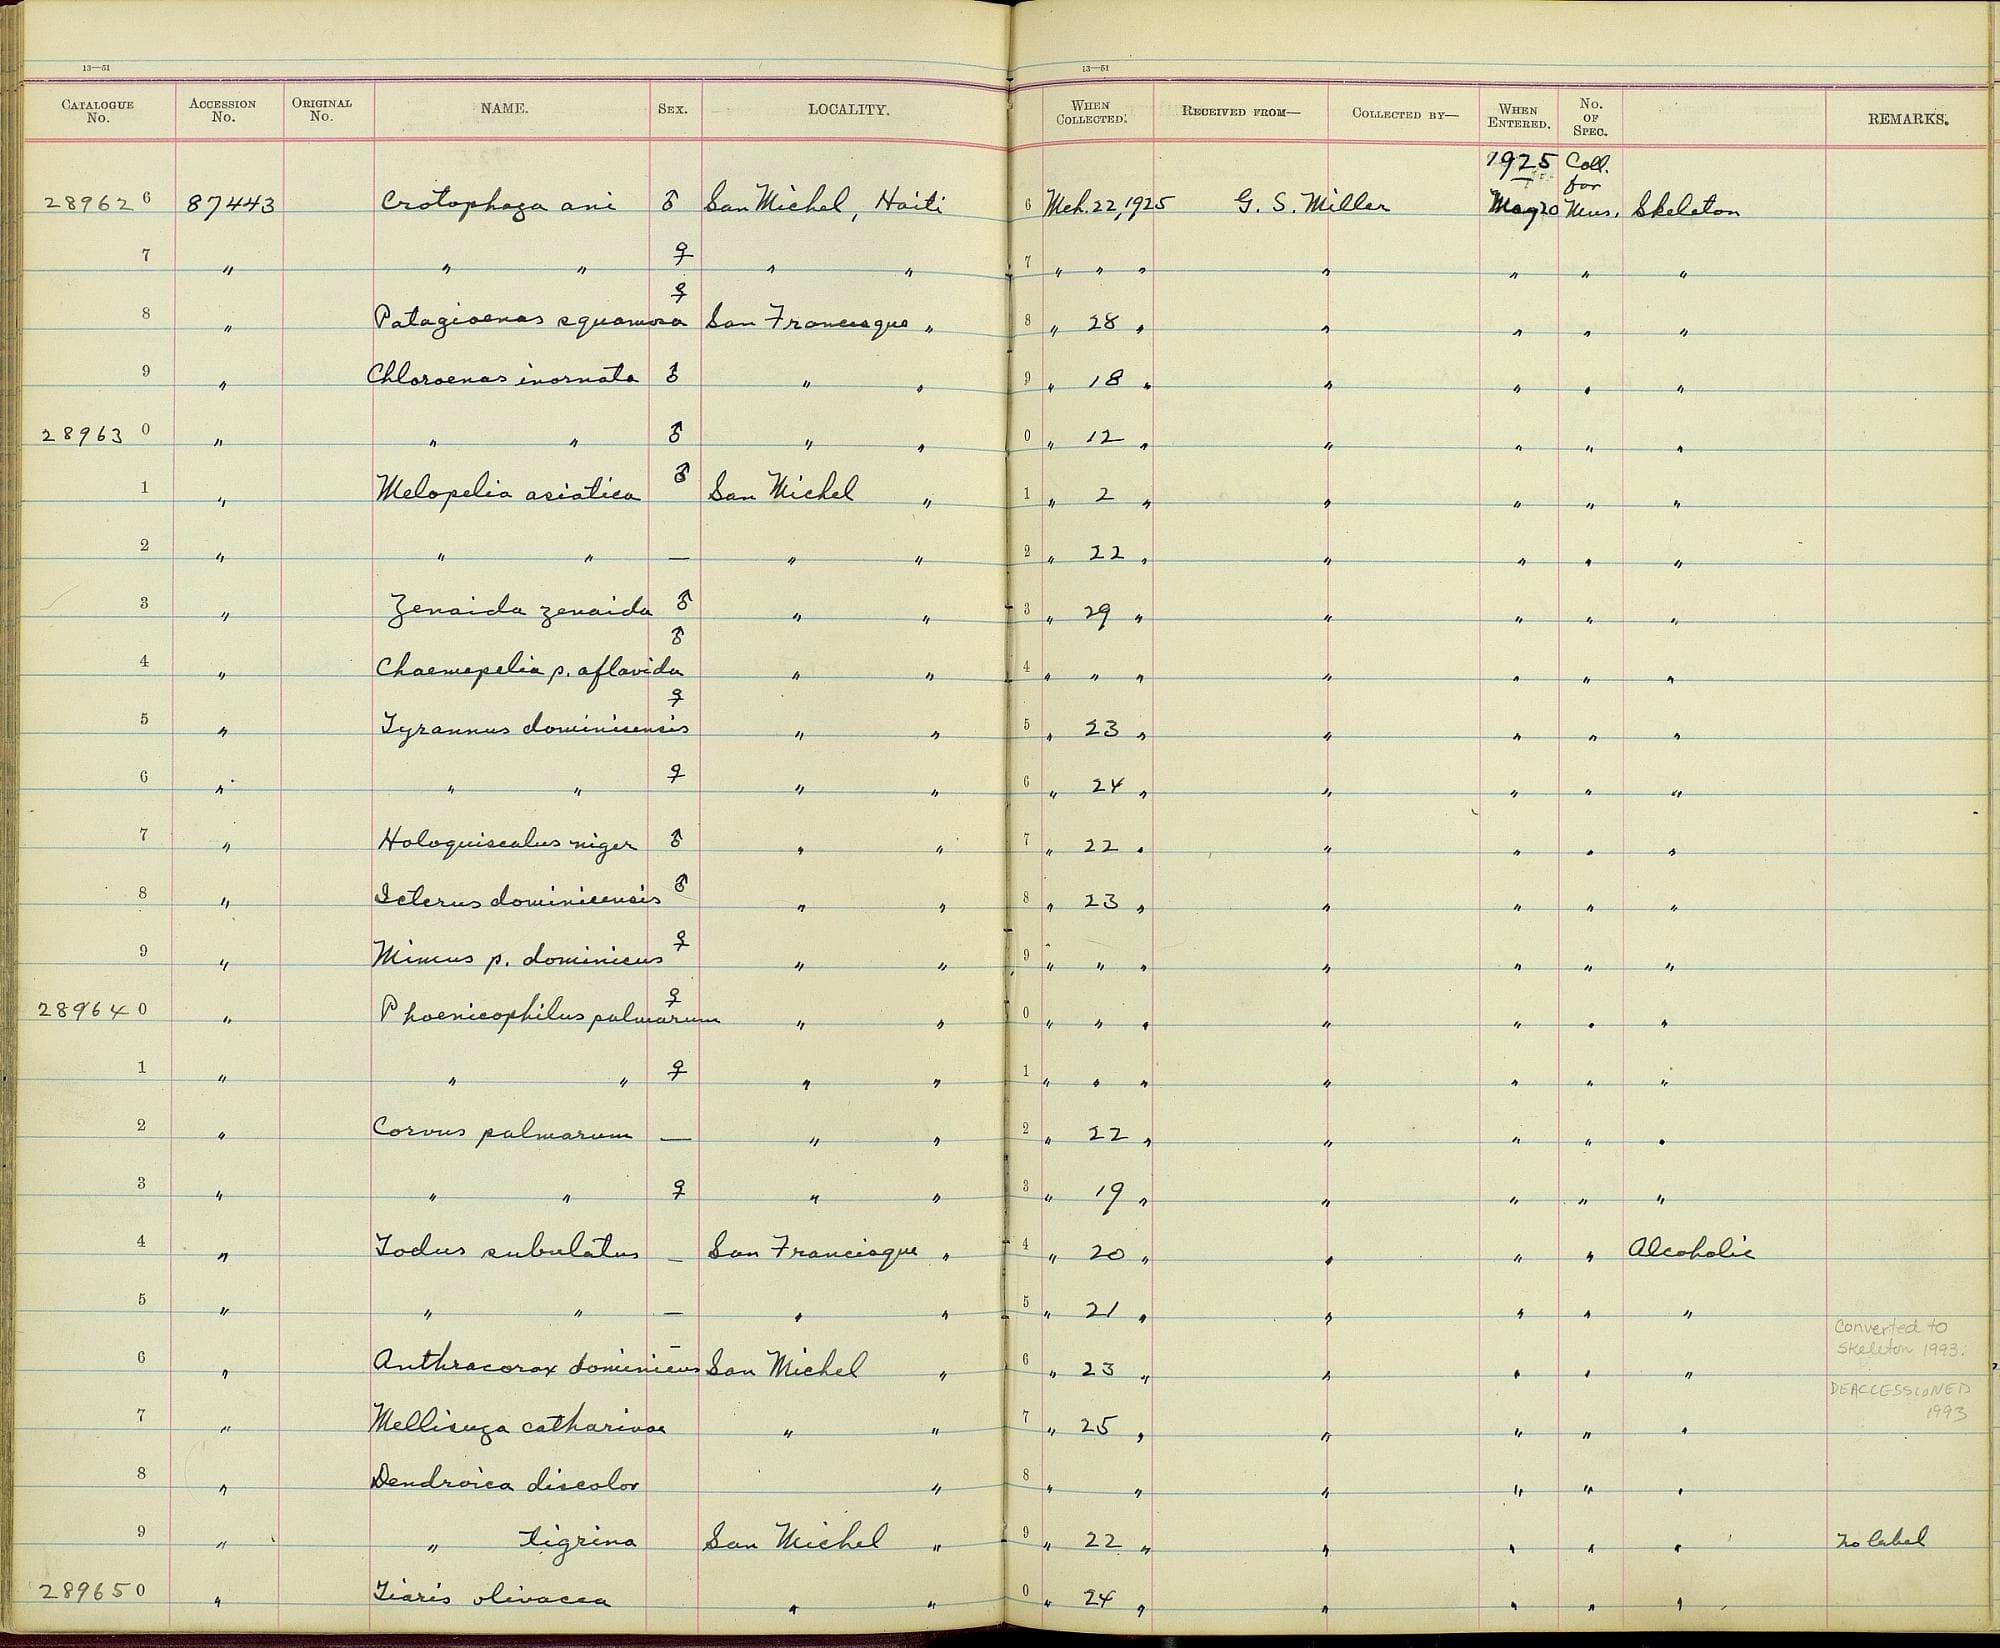 13—51 13—51
CATALOGUE No. ACCESSION No. ORIGINAL No. NAME. SEX. LOCALITY. WHEN COLLECTED. RECEIVED FROM— COLLECTED BY— WHEN ENTERED. No. OF SPEC. REMARKS.
1925 Coll. for
28962 6 87443 Crotophaga ani ♂ San Michel, Haiti 6 Mch. 22, 1925 G. S. Miller May 20 Mus. Skeleton
7 " " " ♀ " " 7 " " " " " " "
8 " Patagioenas squamosa ♀ San Francisque " 8 " 28 " " " " "
9 " Chloroenas inornata ♂ " " 9 " 18 " " " " "
28963 0 " " " ♂ " " 0 " 12 " " " " "
1 " Melopelia asiatica ♂ San Michel " 1 " 2 " " " " "
2 " " " — " " 2 " 22 " " " " "
3 " Zenaida zenaida ♂ " " 3 " 29 " " " " "
4 " Chaemepelia p. aflavida ♂ " " 4 " " " " " " "
5 " Tyrannus dominicensis ♀ " " 5 " 23 " " " " "
6 " " " ♀ " " 6 " 24 " " " " "
7 " Holoquiscalus niger ♂ " " 7 " 22 " " " " "
8 " Icterus dominicensis ♂ " " 8 " 23 " " " " "
9 " Mimus p. dominicus ♀ " " 9 " " " " " " "
28964 0 " Phoenicophilus palmarum ♀ " " 0 " " " " " " "
1 " " " ♀ " " 1 " " " " " " "
2 " Corvus palmarum — " " 2 " 22 " " " " "
3 " " " ♀ " " 3 " 19 " " " " "
4 " Todus subulatus — San Francisque " 4 " 20 " " " " Alcoholic
5 " " " — " " 5 " 21 " " " " "
6 " Anthracorax dominicus — San Michel " 6 " 23 " " " " " Converted to skeleton 1993.
7 " Mellisuga catharinae " " 7 " 25 " " " " " DEACCESSIONED 1993
8 " Dendroica discolor " 8 " " " " " "
9 " " tigrina San Michel " 9 " 22 " " " " " No label
28965 0 " Tiaris olivacea " " 0 " 24 " " " " "